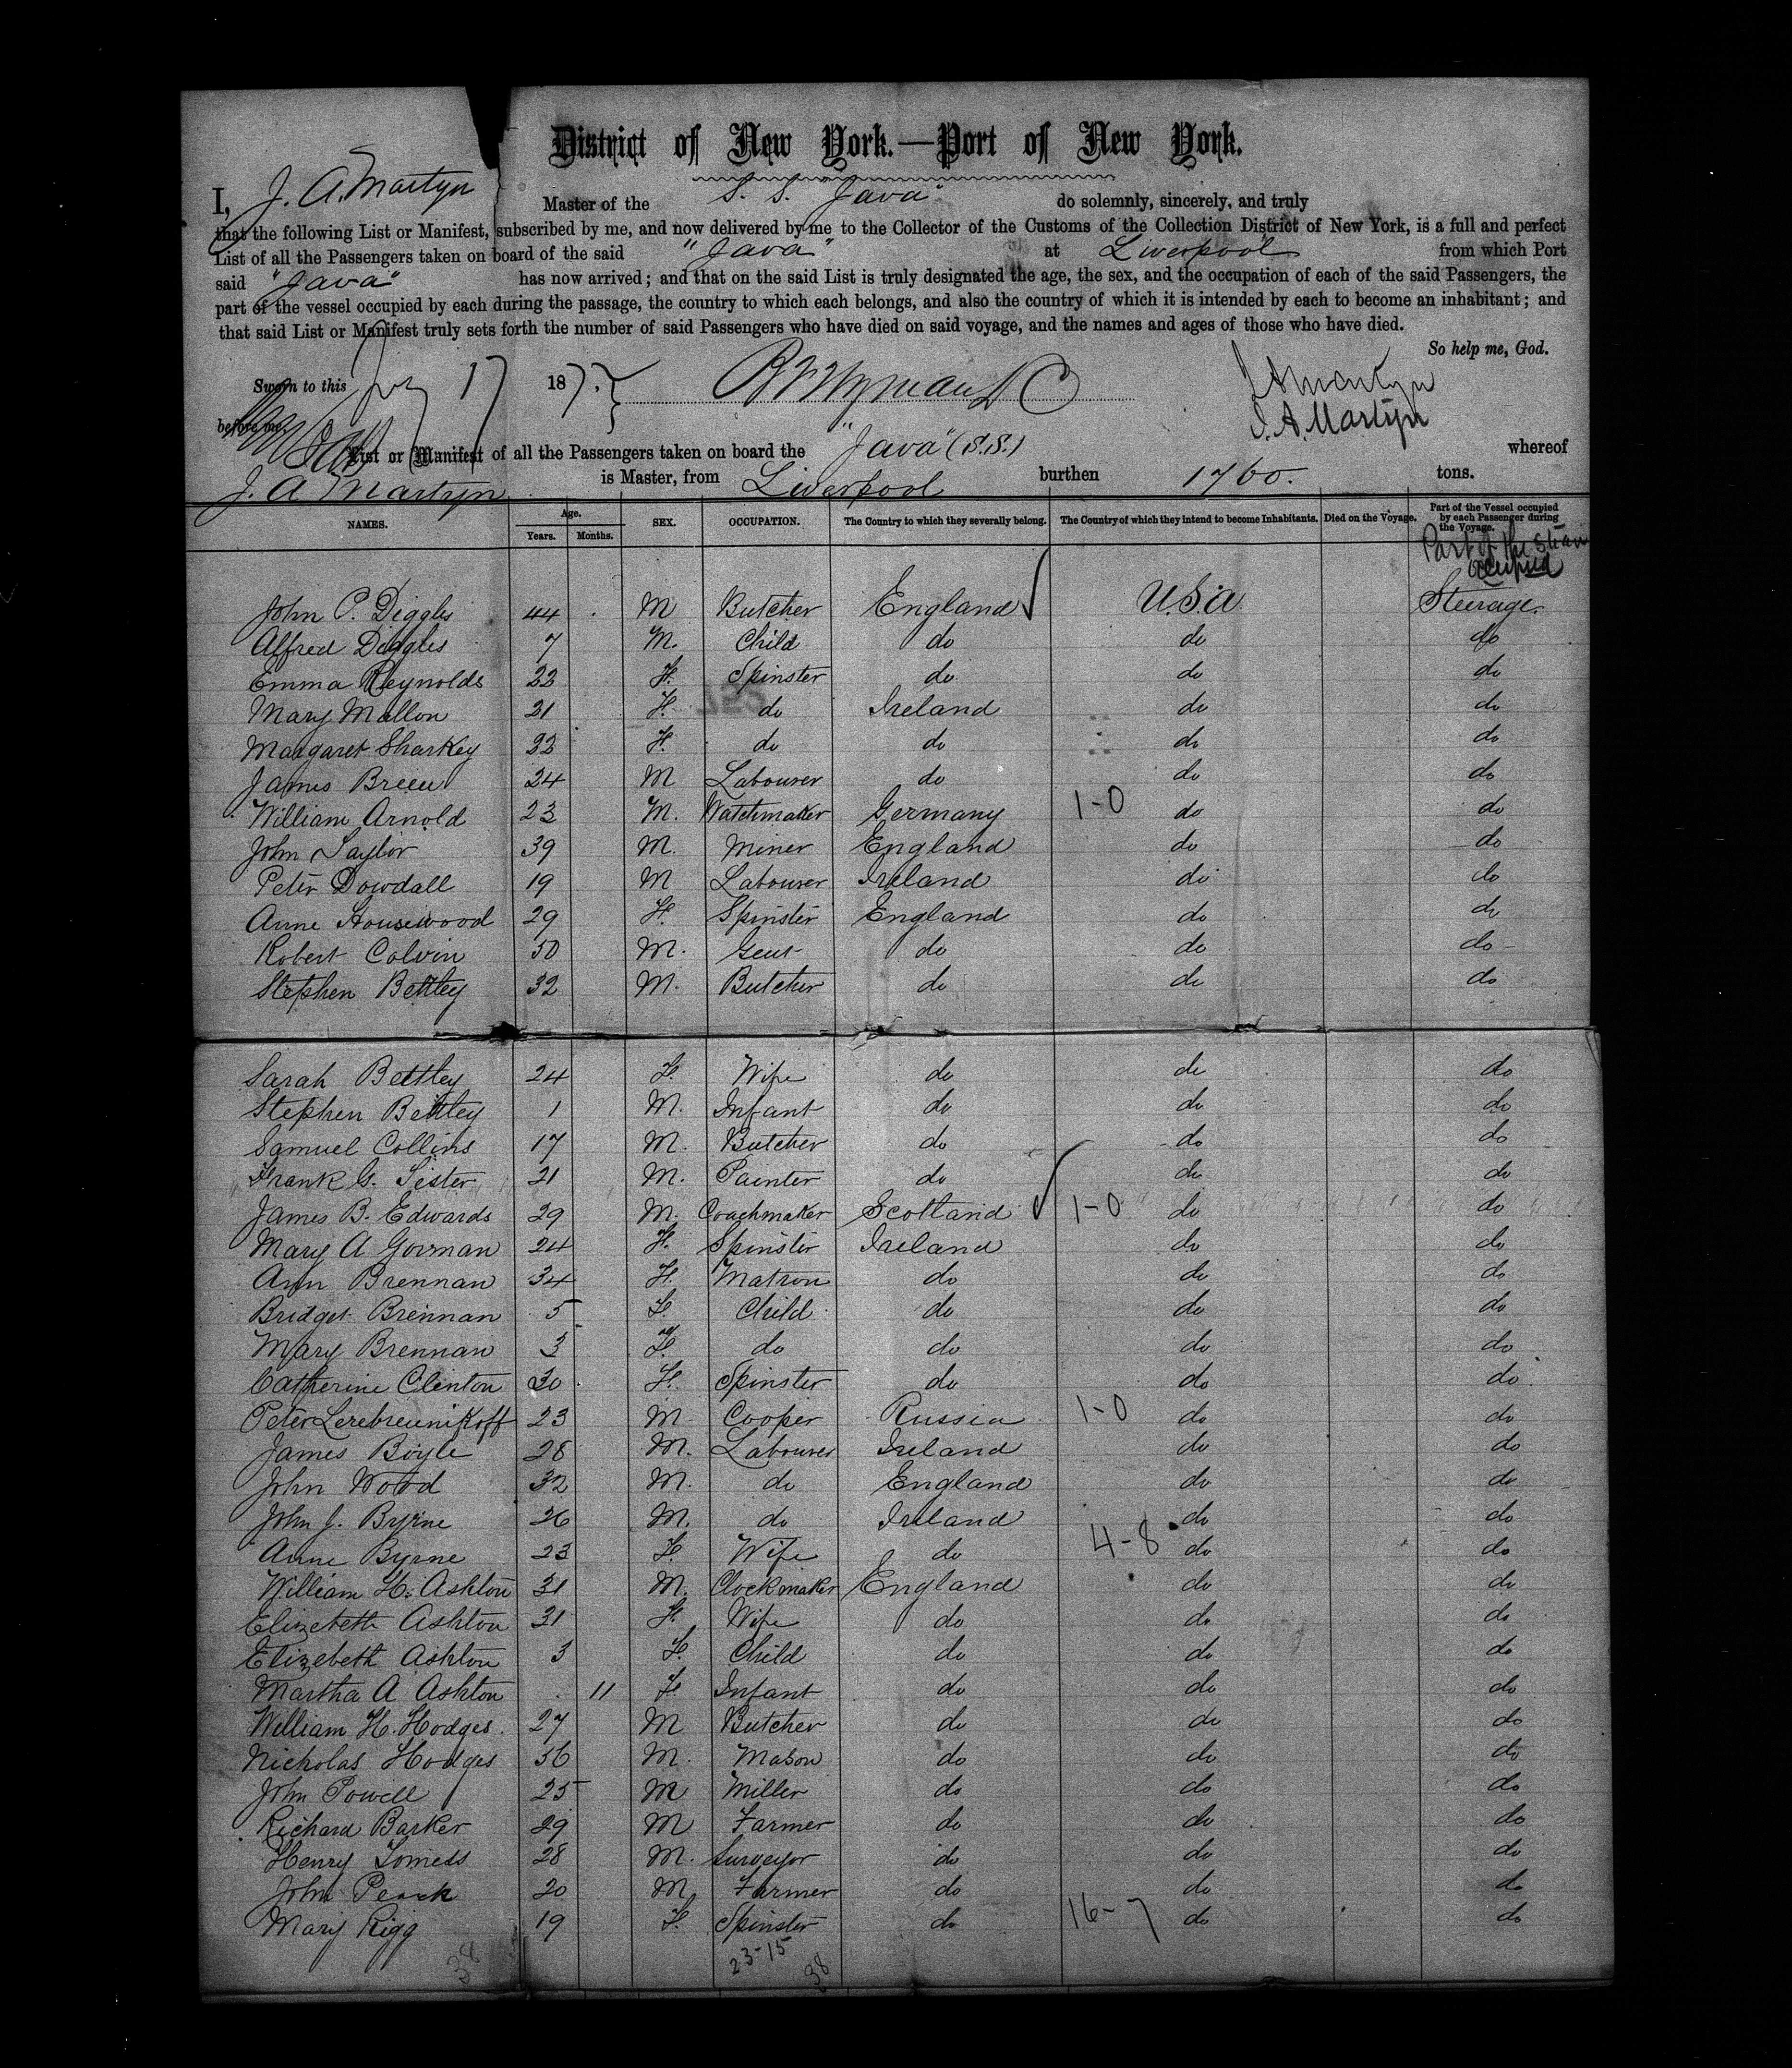 District of New York.—Port of New York.
I, J. A. Martyn Master of the S. S. "Java" do solemnly, sincerely, and truly
that the following List or Manifest, subscribed by me, and now delivered by me to the Collector of the Customs of the Collection District of New York, is a full and perfect
List of all the Passengers taken on board of the said "Java" at Liverpool from which Port
said "Java" has now arrived; and that on the said List is truly designated the age, the sex, and the occupation of each of the said Passengers, the
part of the vessel occupied by each during the passage, the country to which each belongs, and also the country of which it is intended by each to become an inhabitant; and
that said List or Manifest truly sets forth the number of said Passengers who have died on said voyage, and the names and ages of those who have died.
So help me, God.
Sworn to this 17 187
J A Martyn
before me,
J. A. Martyn
List or Manifest of all the Passengers taken on board the "Java" (S.S.) whereof
J. A Martyn is Master, from Liverpool burthen 1760. tons.
NAMES. Age. Years. Months. SEX. OCCUPATION. The Country to which they severally belong. The Country of which they intend to become Inhabitants. Died on the Voyage. Part of the Vessel occupied by each Passenger during the Voyage.
Part of the occupied
John P. Diggles 44 M Butcher England USA Steerage
Alfred Diggles 7 M. Child do do do
Emma Reynolds 22 F. Spinster do do do
Mary Mallon 21 F. do Ireland do do
Margaret Sharkey 22 F. do do do do
James Breen 24 M Labourer do do do
William Arnold 23 M. Watchmaker Germany 1-0 do do
John Taylor 39 M. Miner England do do
Peter Dowdall 19 M Labourer Ireland do do
Anne Housewood 29 F. Spinster England do do
Robert Colvin 50 M. Gent do do do
Stephen Bettley 32 M. Butcher do do do
Sarah Bettley 24 F. Wife do do do
Stephen Bettley 1 M. Infant do do do
Samuel Collins 17 M. Butcher do do do
Frank G. Lister 21 M. Painter do do do
James B. Edwards 29 M. Coachmaker Scotland 1-0 do do
Mary A Gorman 24 F. Spinster Ireland do do
Ann Brennan 34 F. Matron do do do
Bridget Brennan 5 F. Child do do do
Mary Brennan 3 F. do do do do
Catherine Clinton 30 F. Spinster do do do
Peter Lerebreunikoff 23 M Cooper Russia 1-0 do do
James Boyle 28 M. Labourer Ireland do do
John Wood 32 M. do England do do
John J. Byrne 26 M. do Ireland do do
Anne Byrne 23 F. Wife do 4-8 do do
William H. Ashton 31 M. Clockmaker England do do
Elizebeth Ashton 31 F. Wife do do do
Elizebeth Ashton 3 F. Child do do do
Martha A Ashton 11 F. Infant do do do
William H. Hodges. 27 M Butcher do do do
Nicholas Hodges 36 M. Mason do do do
John Powell 25 M Miller do do do
Richard Barker 29 M Farmer do do do
Henry 28 M. Surveyor do do do
John Peack 20 M Farmer do do do
Mary Rigg 19 F. Spinster do 16-7 do do
38 23-15 38